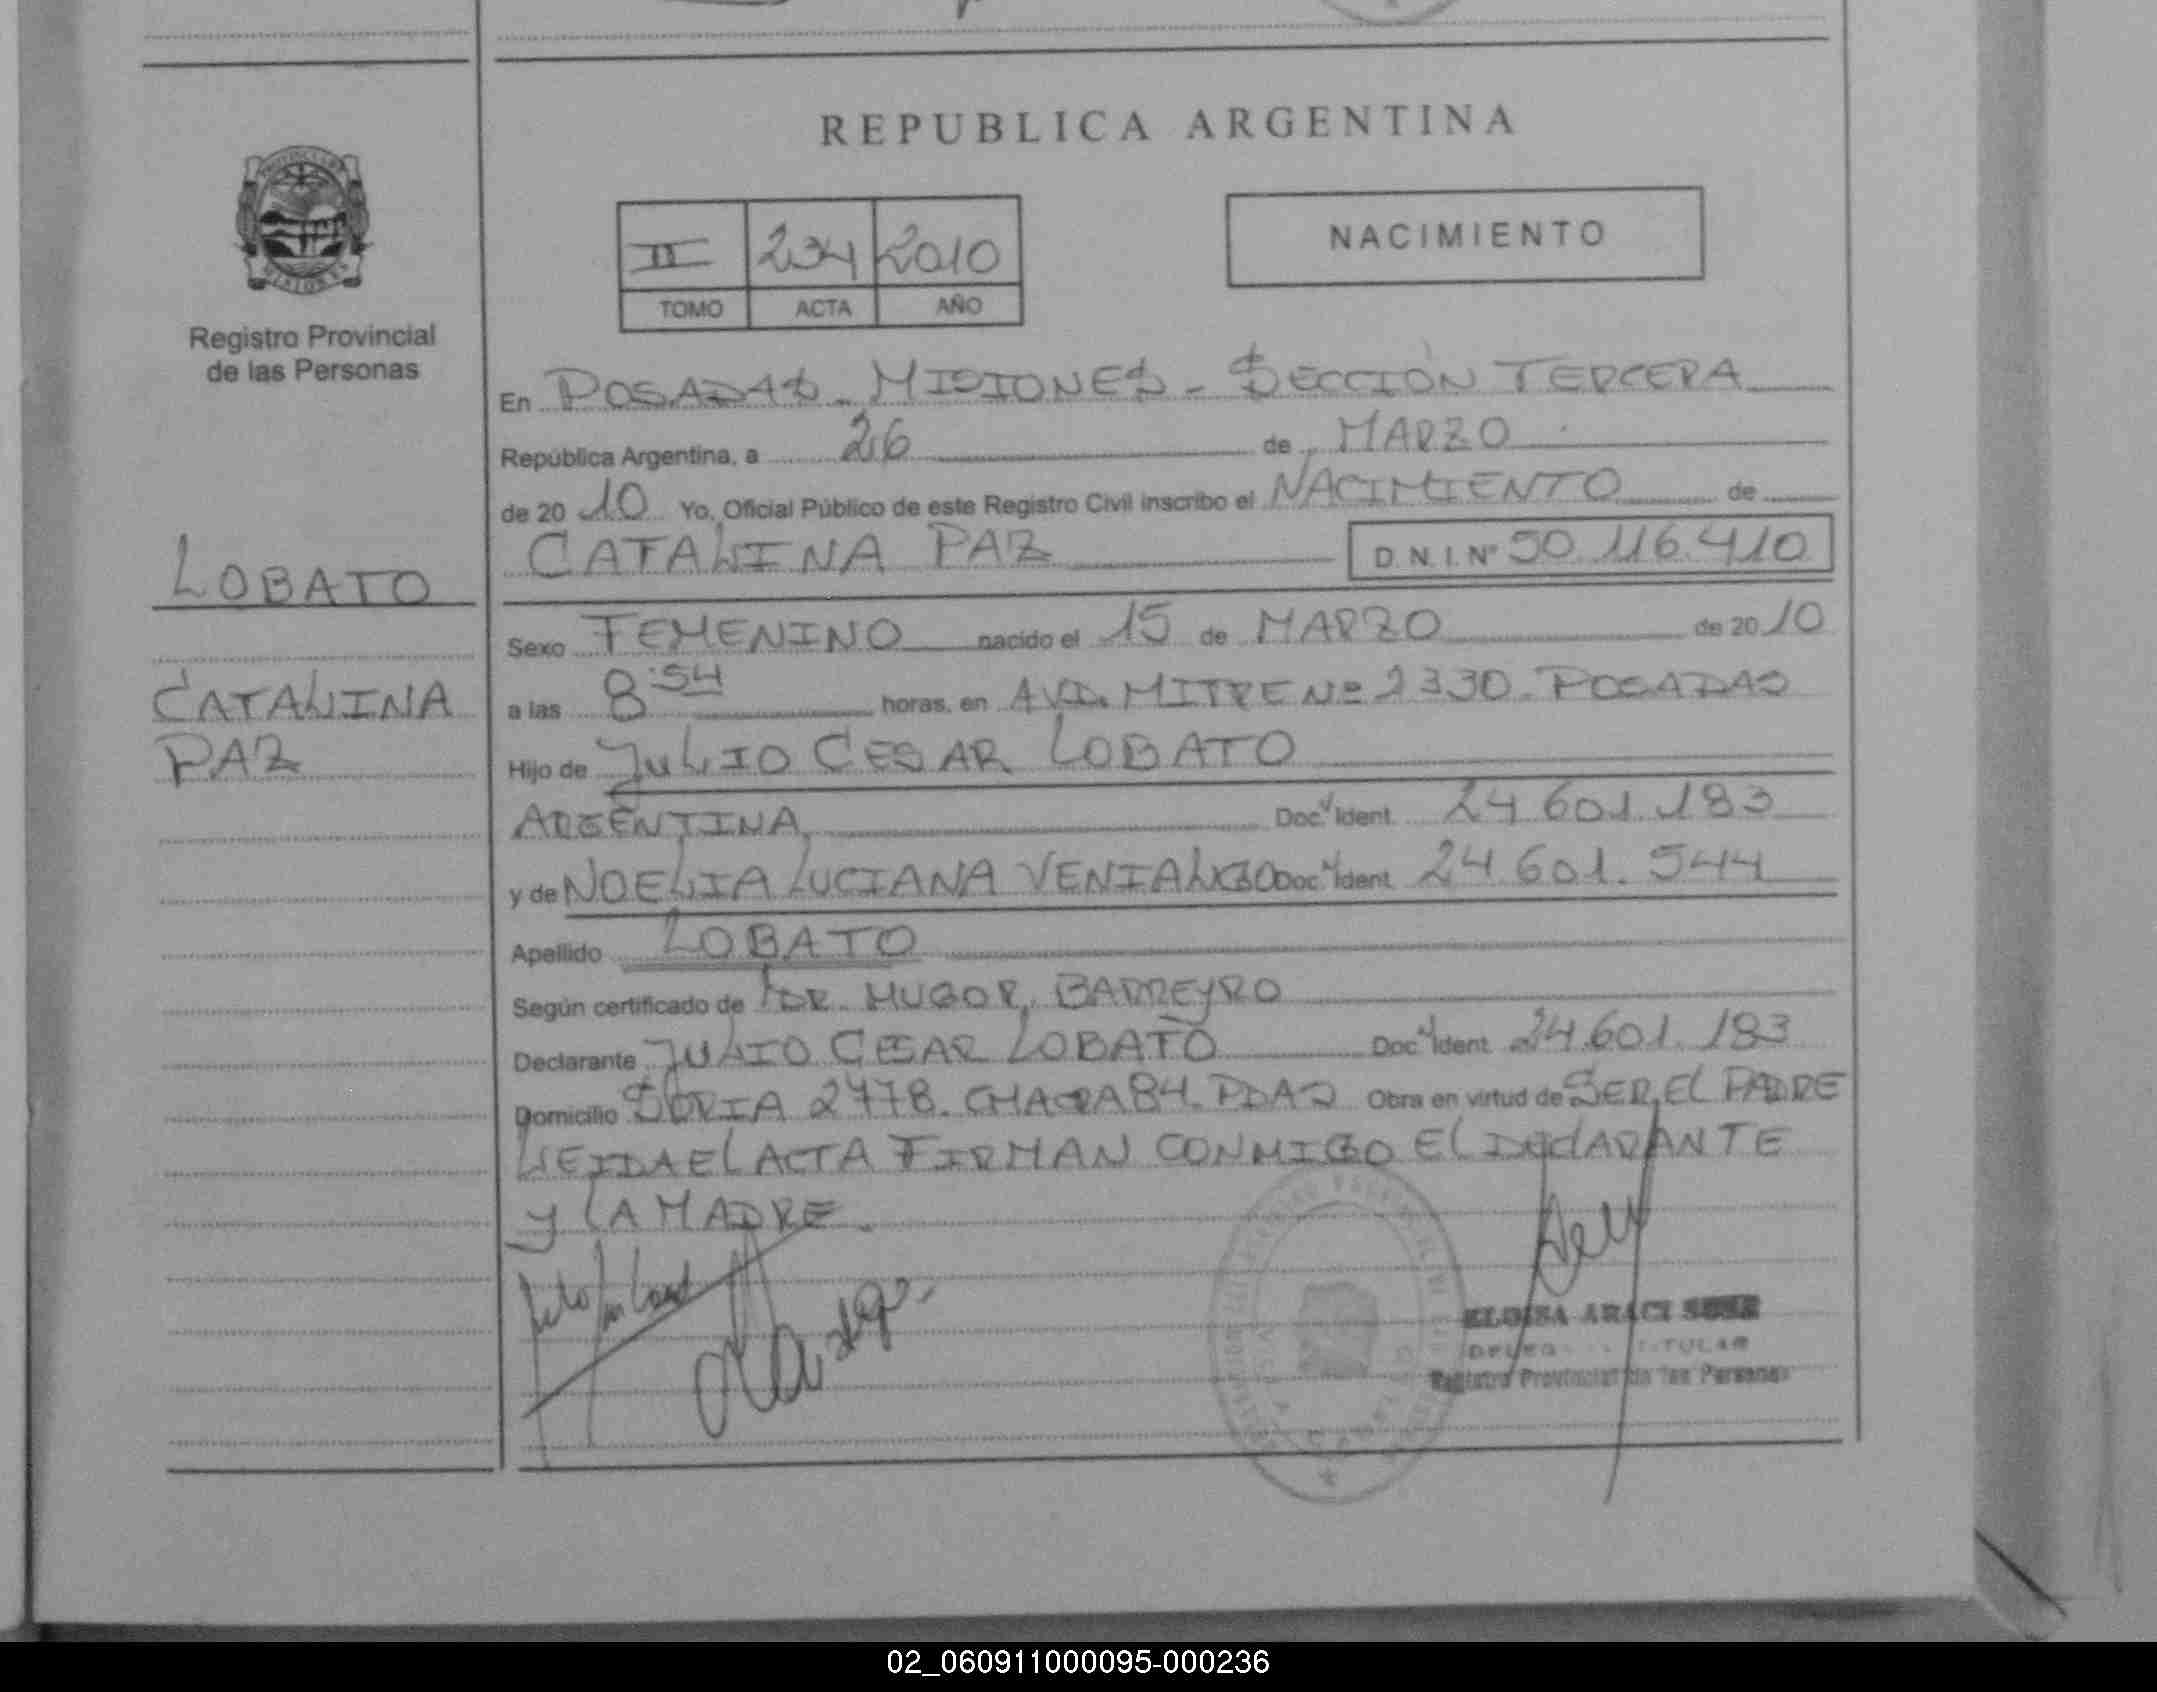 REPUBLICA ARGENTINA
II 234 2010
TOMO ACTA AÑO
NACIMIENTO
Registro Provincial
de las Personas
LOBATO
CATALINA
PAZ
En POSADAS - MISIONES - SECCIÓN TERCERA
República Argentina, a 26 de MARZO
de 20 10 Yo, Oficial Público de este Registro Civil inscribo el NACIMIENTO de
CATALINA PAZ D.N.I. Nº 50.116.410
Sexo FEMENINO nacido el 15 de MARZO de 20 10
a las 8:54 horas, en AVD. MITRE Nº 2330. POSADAS
Hijo de JULIO CESAR LOBATO
ARGENTINA Doc. Ident. 24.601.183
y de NOELIA LUCIANA VENIALGO Doc. Ident. 24.601.544
Apellido LOBATO
Según certificado de DR. HUGO R. BARREYRO
Declarante JULIO CESAR LOBATO Doc. Ident. 24.601.183
Domicilio SORIA 2478. CHACRA 84. PDAS Obra en virtud de SER EL PADRE
LEIDA EL ACTA FIRMAN CONMIGO EL DECLARANTE
Y LA MADRE.
ELOISA ARACI
TITULAR
Registro Provincial de las Personas
02_060911000095-000236